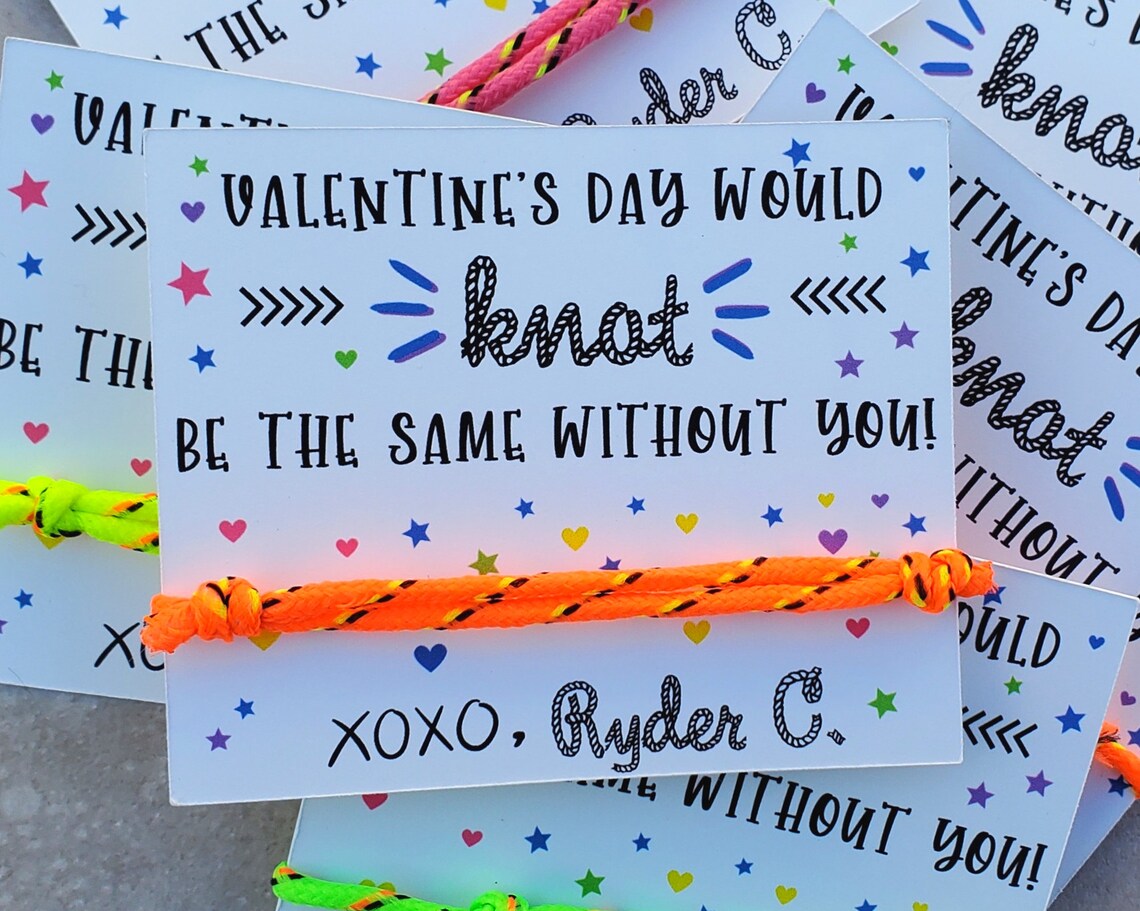 THE SA
Ryder C
knot
VALENTI
BE THE
XO
VALENTINE'S DAY WOULD
>>>>> knot <<<<<
BE THE SAME WITHOUT YOU!
XOXO, Ryder C.
NTINE'S DAY
knot
ITHOUT
OULD
ME WITHOUT YOU!